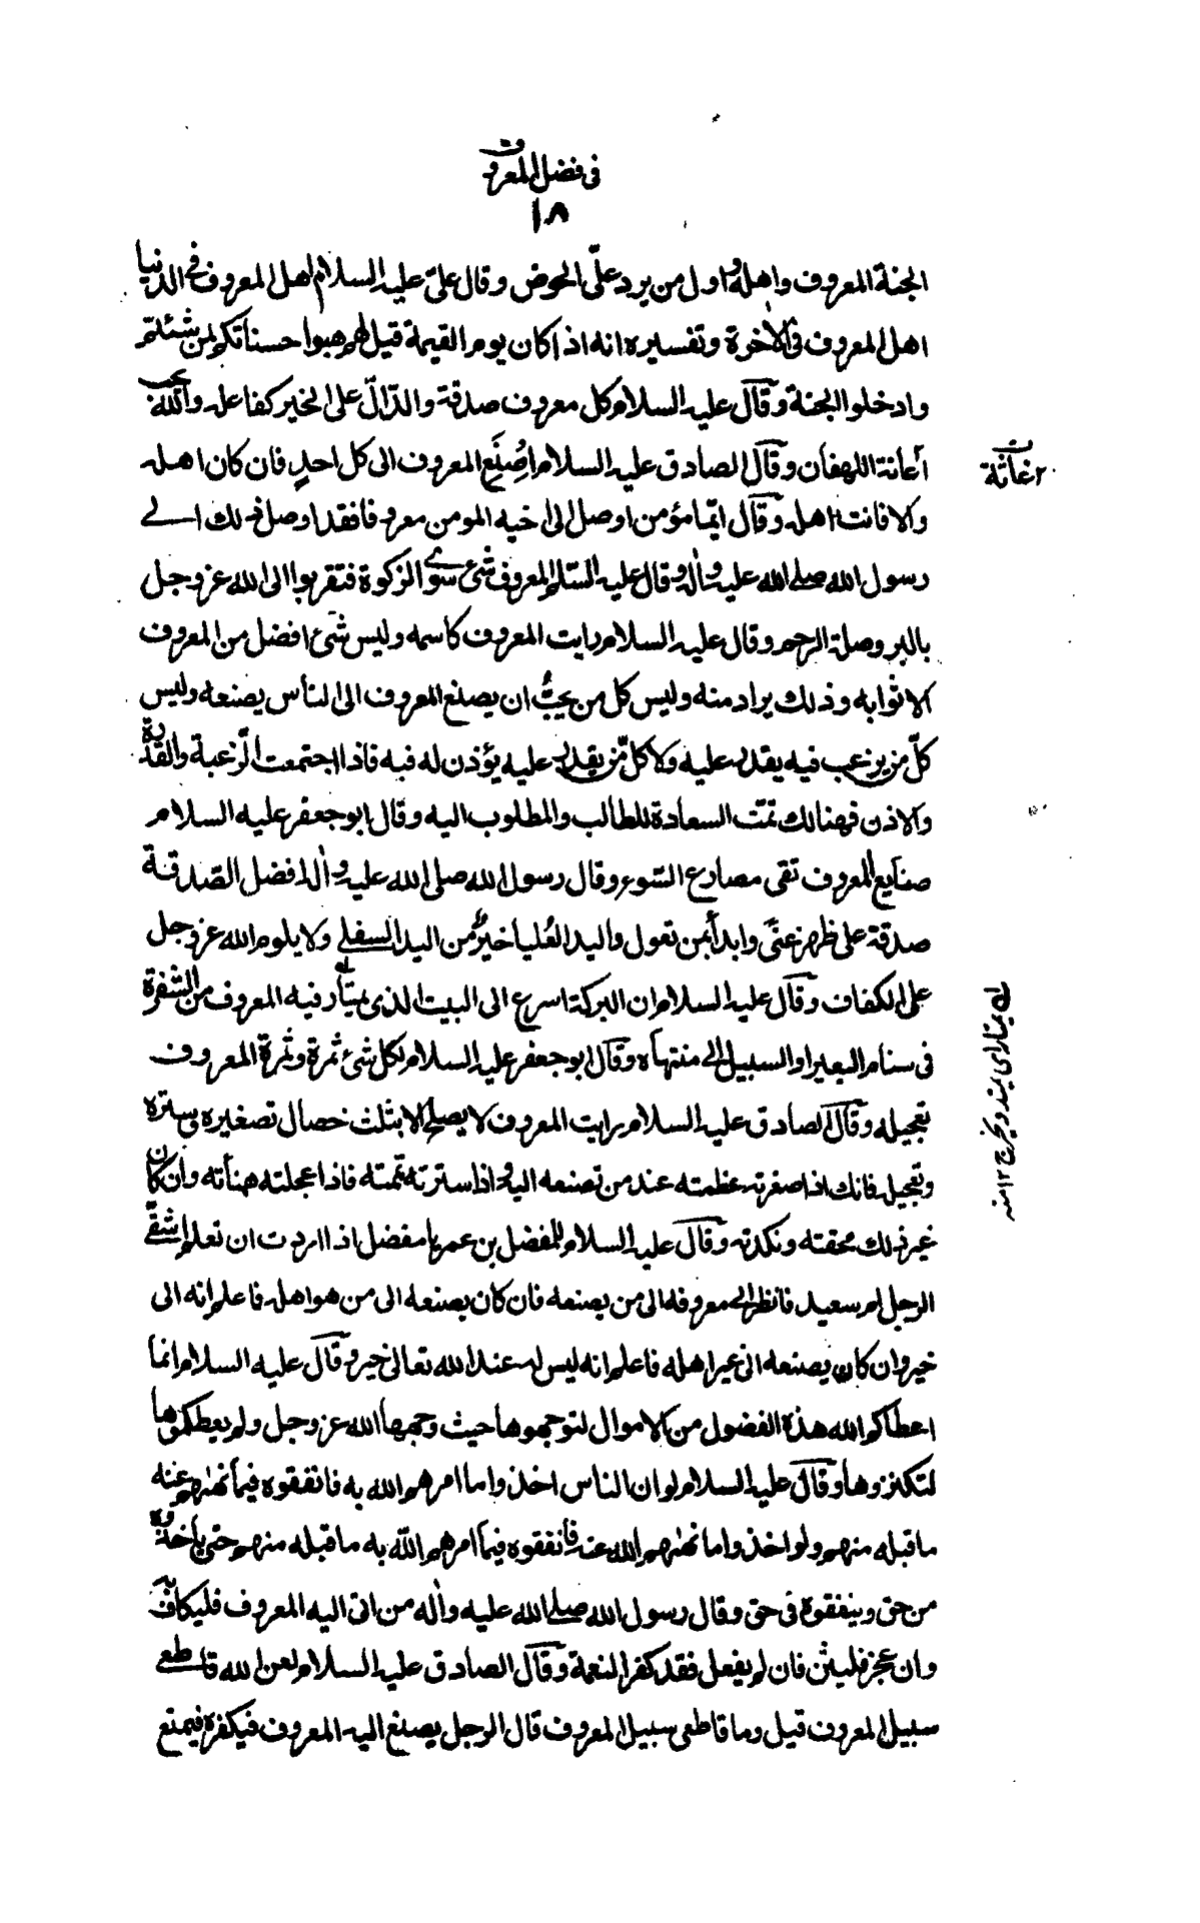 فى فضل المعروف
١٨
الجنة المعروف واهله واول من يرد علىّ الحوض وقال علىّ عليه السلام اهل المعروف فى الدنيا
اهل المعروف فى الاخرة وتفسيره انه اذا كان يوم القيمة قيل لهم هبوا حسناتكم لمن شئتم
وادخلوا الجنة وقال عليه السلام كل معروف صدقة والدّالّ على الخير كفاعله والله يحب
اعانة اللهفان وقال الصادق عليه السلام اصنع المعروف الى كل احد فان كان اهله
٢ اغاثة
والا فانت اهله وقال ايّما مؤمن اوصل الى اخيه المومن معروفا فقد اوصل ذلك الے
رسول الله صلى الله عليه واله وقال عليه السّلم المعروف شئ سوى الزكوة فتقربوا الى الله عز وجل
بالبر وصلة الرحم وقال عليه السلام رايت المعروف كاسمه وليس شئ افضل من المعروف
الا ثوابه وذلك يراد منه وليس كل من يحبّ ان يصنع المعروف الى الناس يصنعه وليس
كلّ من يرغب فيه يقدر عليه ولا كلّ من يقدر عليه يؤذن له فيه فاذا اجتمعت الرّغبة والقدرة
والاذن فهنالك تمّت السعادة للطالب والمطلوب اليه وقال ابو جعفر عليه السلام
صنايع المعروف تقى مصارع السّوء وقال رسول الله صلى الله عليه واله افضل الصّدقة
صدقة على ظهر غنى وابدأ بمن تعول واليد العُليا خيرٌ من اليد السفلى ولا يلوم الله عز وجل
على الكفاف وقال عليه السلام ان البركة اسرع الى البيت الذى يمتار فيه المعروف من الشفرة
فى سنام البعير او السبيل الى منتهاه وقال ابو جعفر عليه السلام لكل شئ ثمرة وثمرة المعروف
اے يمتار اى
ويخرج ١٢ منه
تعجيله وقال الصادق عليه السلام رايت المعروف لا يصلح الا بثلث خصال تصغيره وستره
وتعجيله فانك اذا صغرته عظمته عند من تصنعه اليه واذا سترته تممته فاذا عجلته هنأته وان كان
غير ذلك محقته ونكدته وقال عليه السلام للمفضل بن عمر يا مفضل اذا اردت ان تعلم اشقى
الرجل ام سعيد فانظر الى معروفه الى من يصنعه فان كان يصنعه الى من هو اهله فاعلم انه الى
خير وان كان يصنعه الى غير اهله فاعلم انه ليس له عند الله تعالى خير وقال عليه السلام انما
اعطاكم الله هذه الفضول من الاموال لتوجهوها حيث وجهها الله عز وجل ولم يعطكموها
لتكنزوها وقال عليه السلام لو ان الناس اخذوا ما امرهم الله به فانفقوه فيما نهٰهم عنه
ما قبله منهم ولو اخذوا ما نهٰهم الله عنه فانفقوه فيما امرهم الله به ما قبله منهم حتى ياخذوه
من حق وينفقوه فى حق وقال رسول الله صلى الله عليه واله من اتى اليه المعروف فليكاف به
وان عجز فليثن فان لم يفعل فقد كفر النعمة وقال الصادق عليه السلام لعن الله قاطعى
سبيل المعروف قيل وما قاطعى سبيل المعروف قال الرجل يصنع اليه المعروف فيكفره فيمتنع